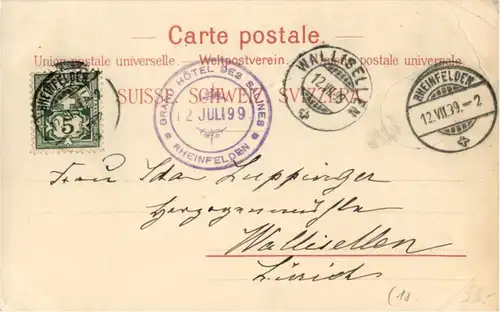 Carte postale.
Union postale universelle. — Weltpostverein. — Unione postale universale.
SUISSE. SCHWEIZ. SVIZZERA.
RHEINFELDEN
5
GRAND HÔTEL DES SALINES
12 JULI 99
RHEINFELDEN
WALLISELLEN
12.VII.99
RHEINFELDEN
12.VII.99.-2
Frau Ida Luppinger
Herzogenmühle
Wallisellen
Zürich